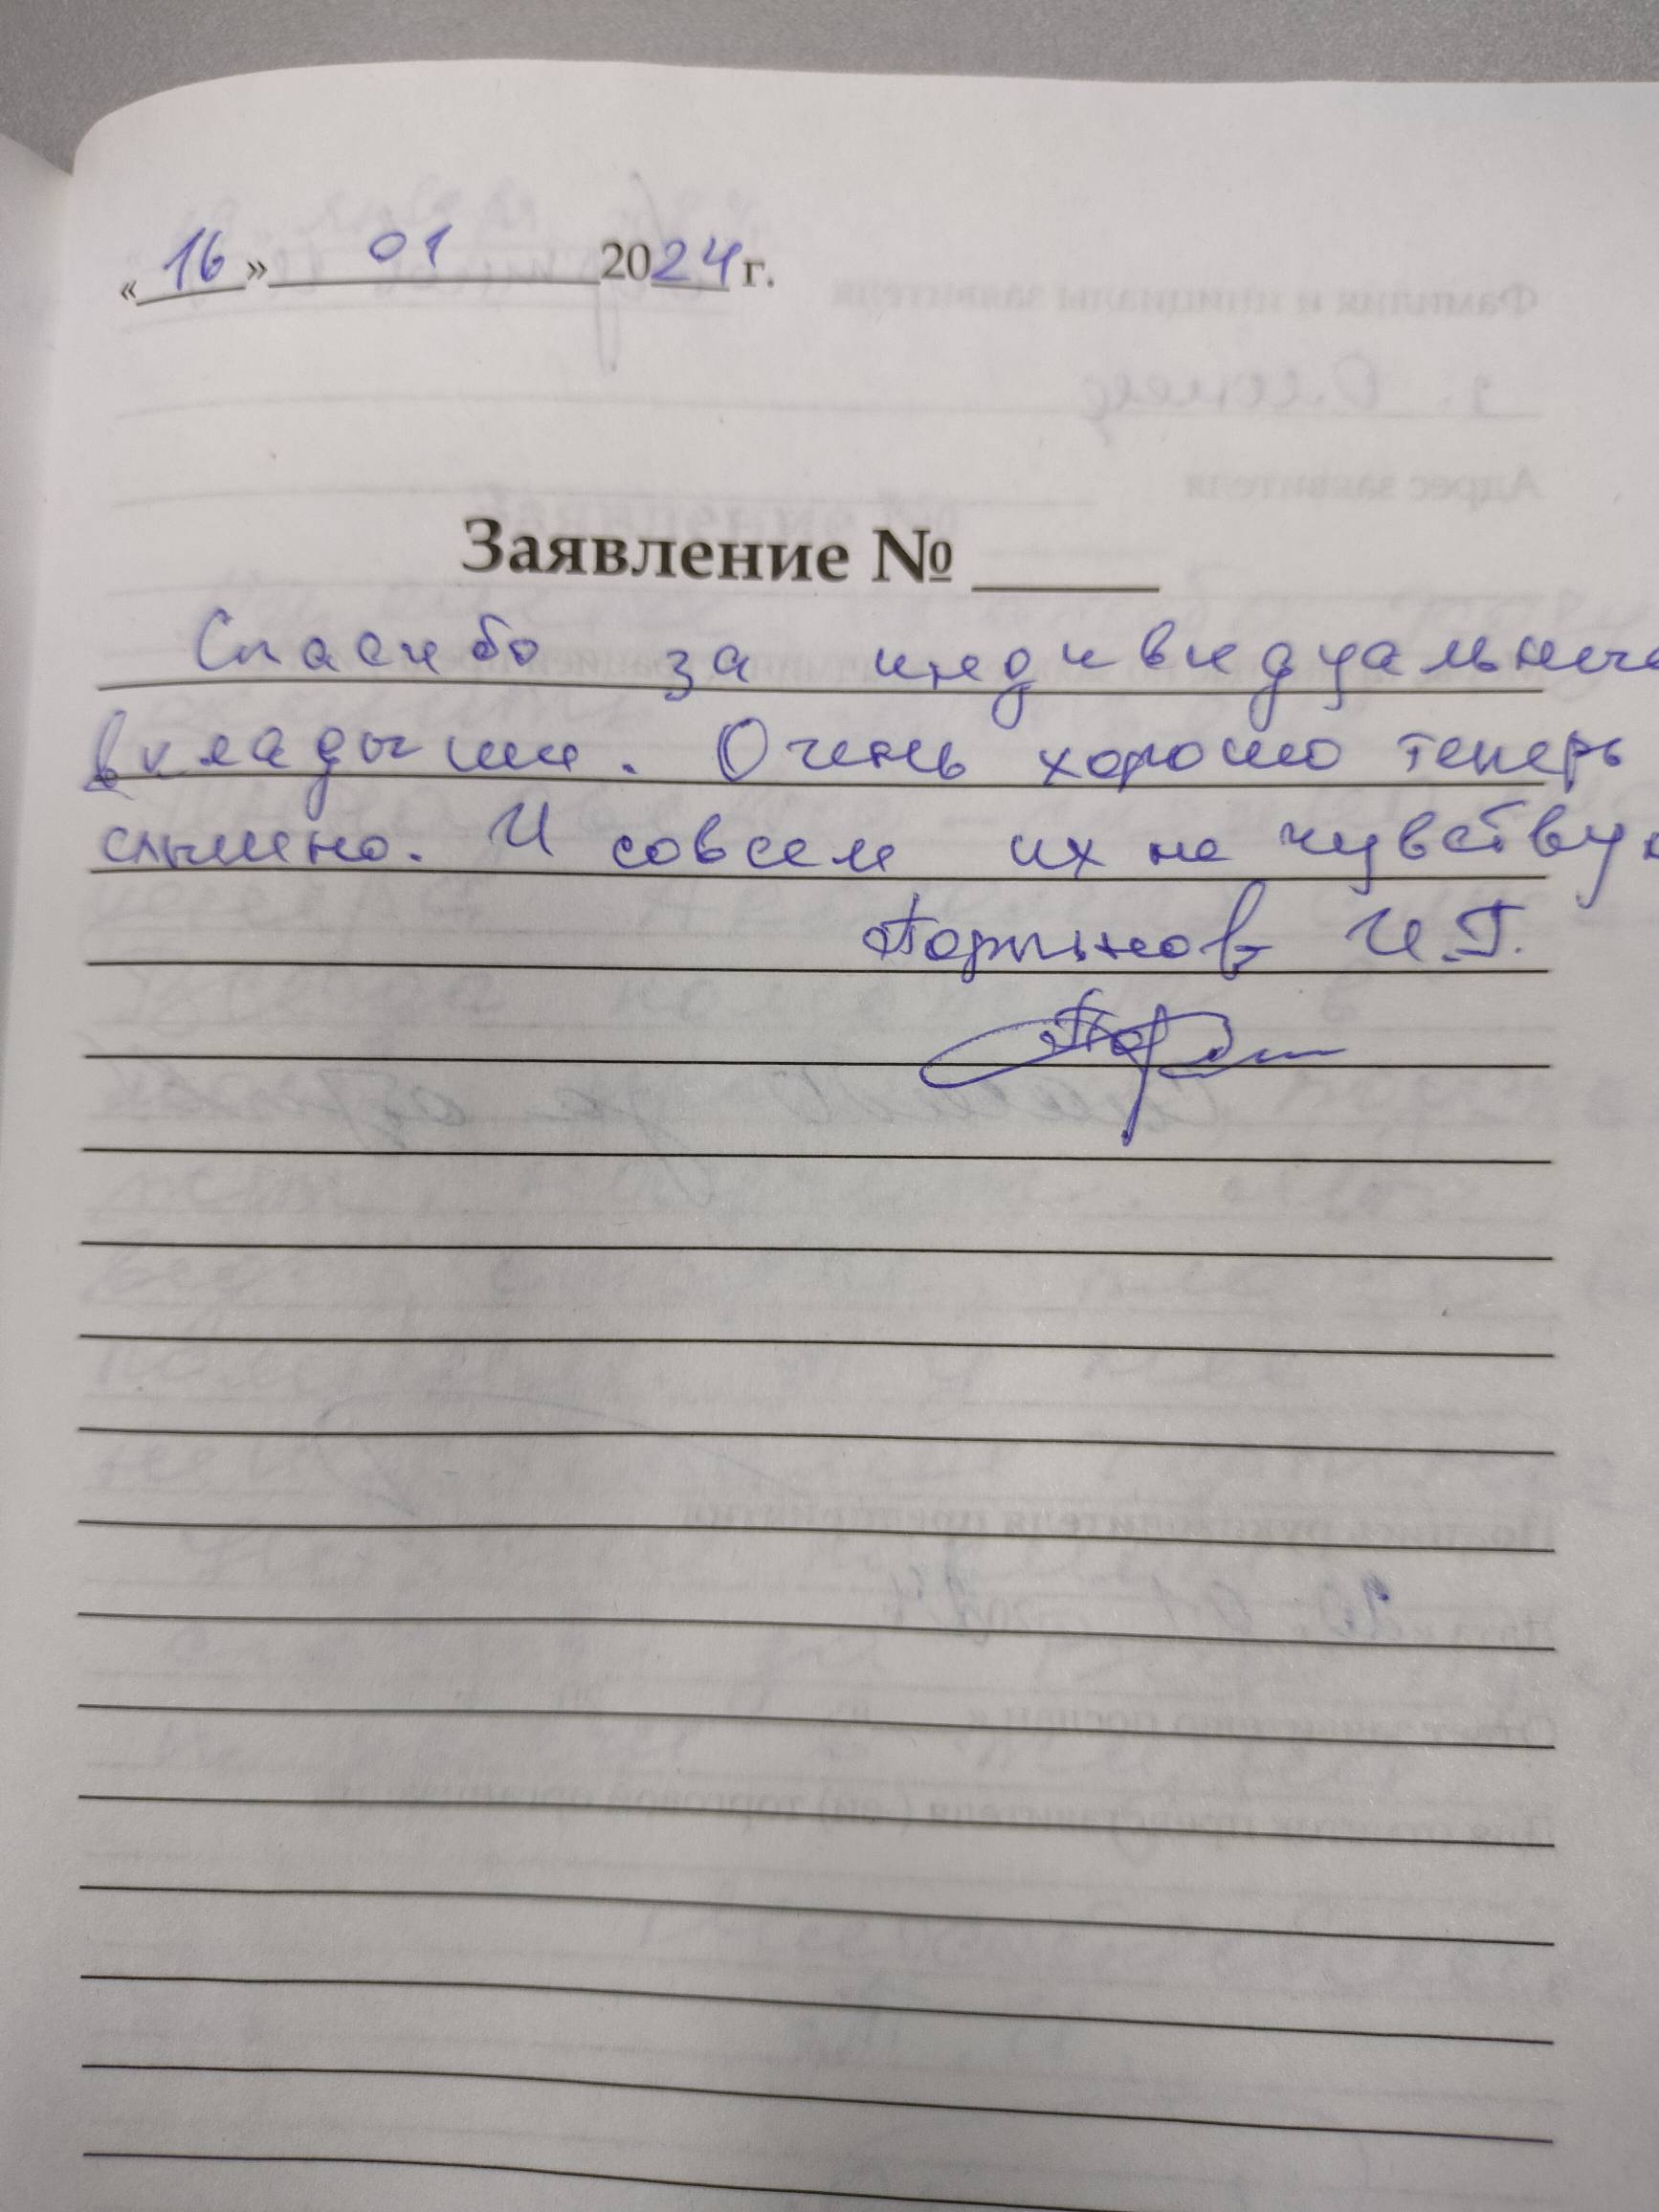 «16» 01 2024 г.
Заявление № ____
Спасибо за индивидуальные
вкладыши. Очень хорошо теперь
слышно. И совсем их не чувству
И.Г.